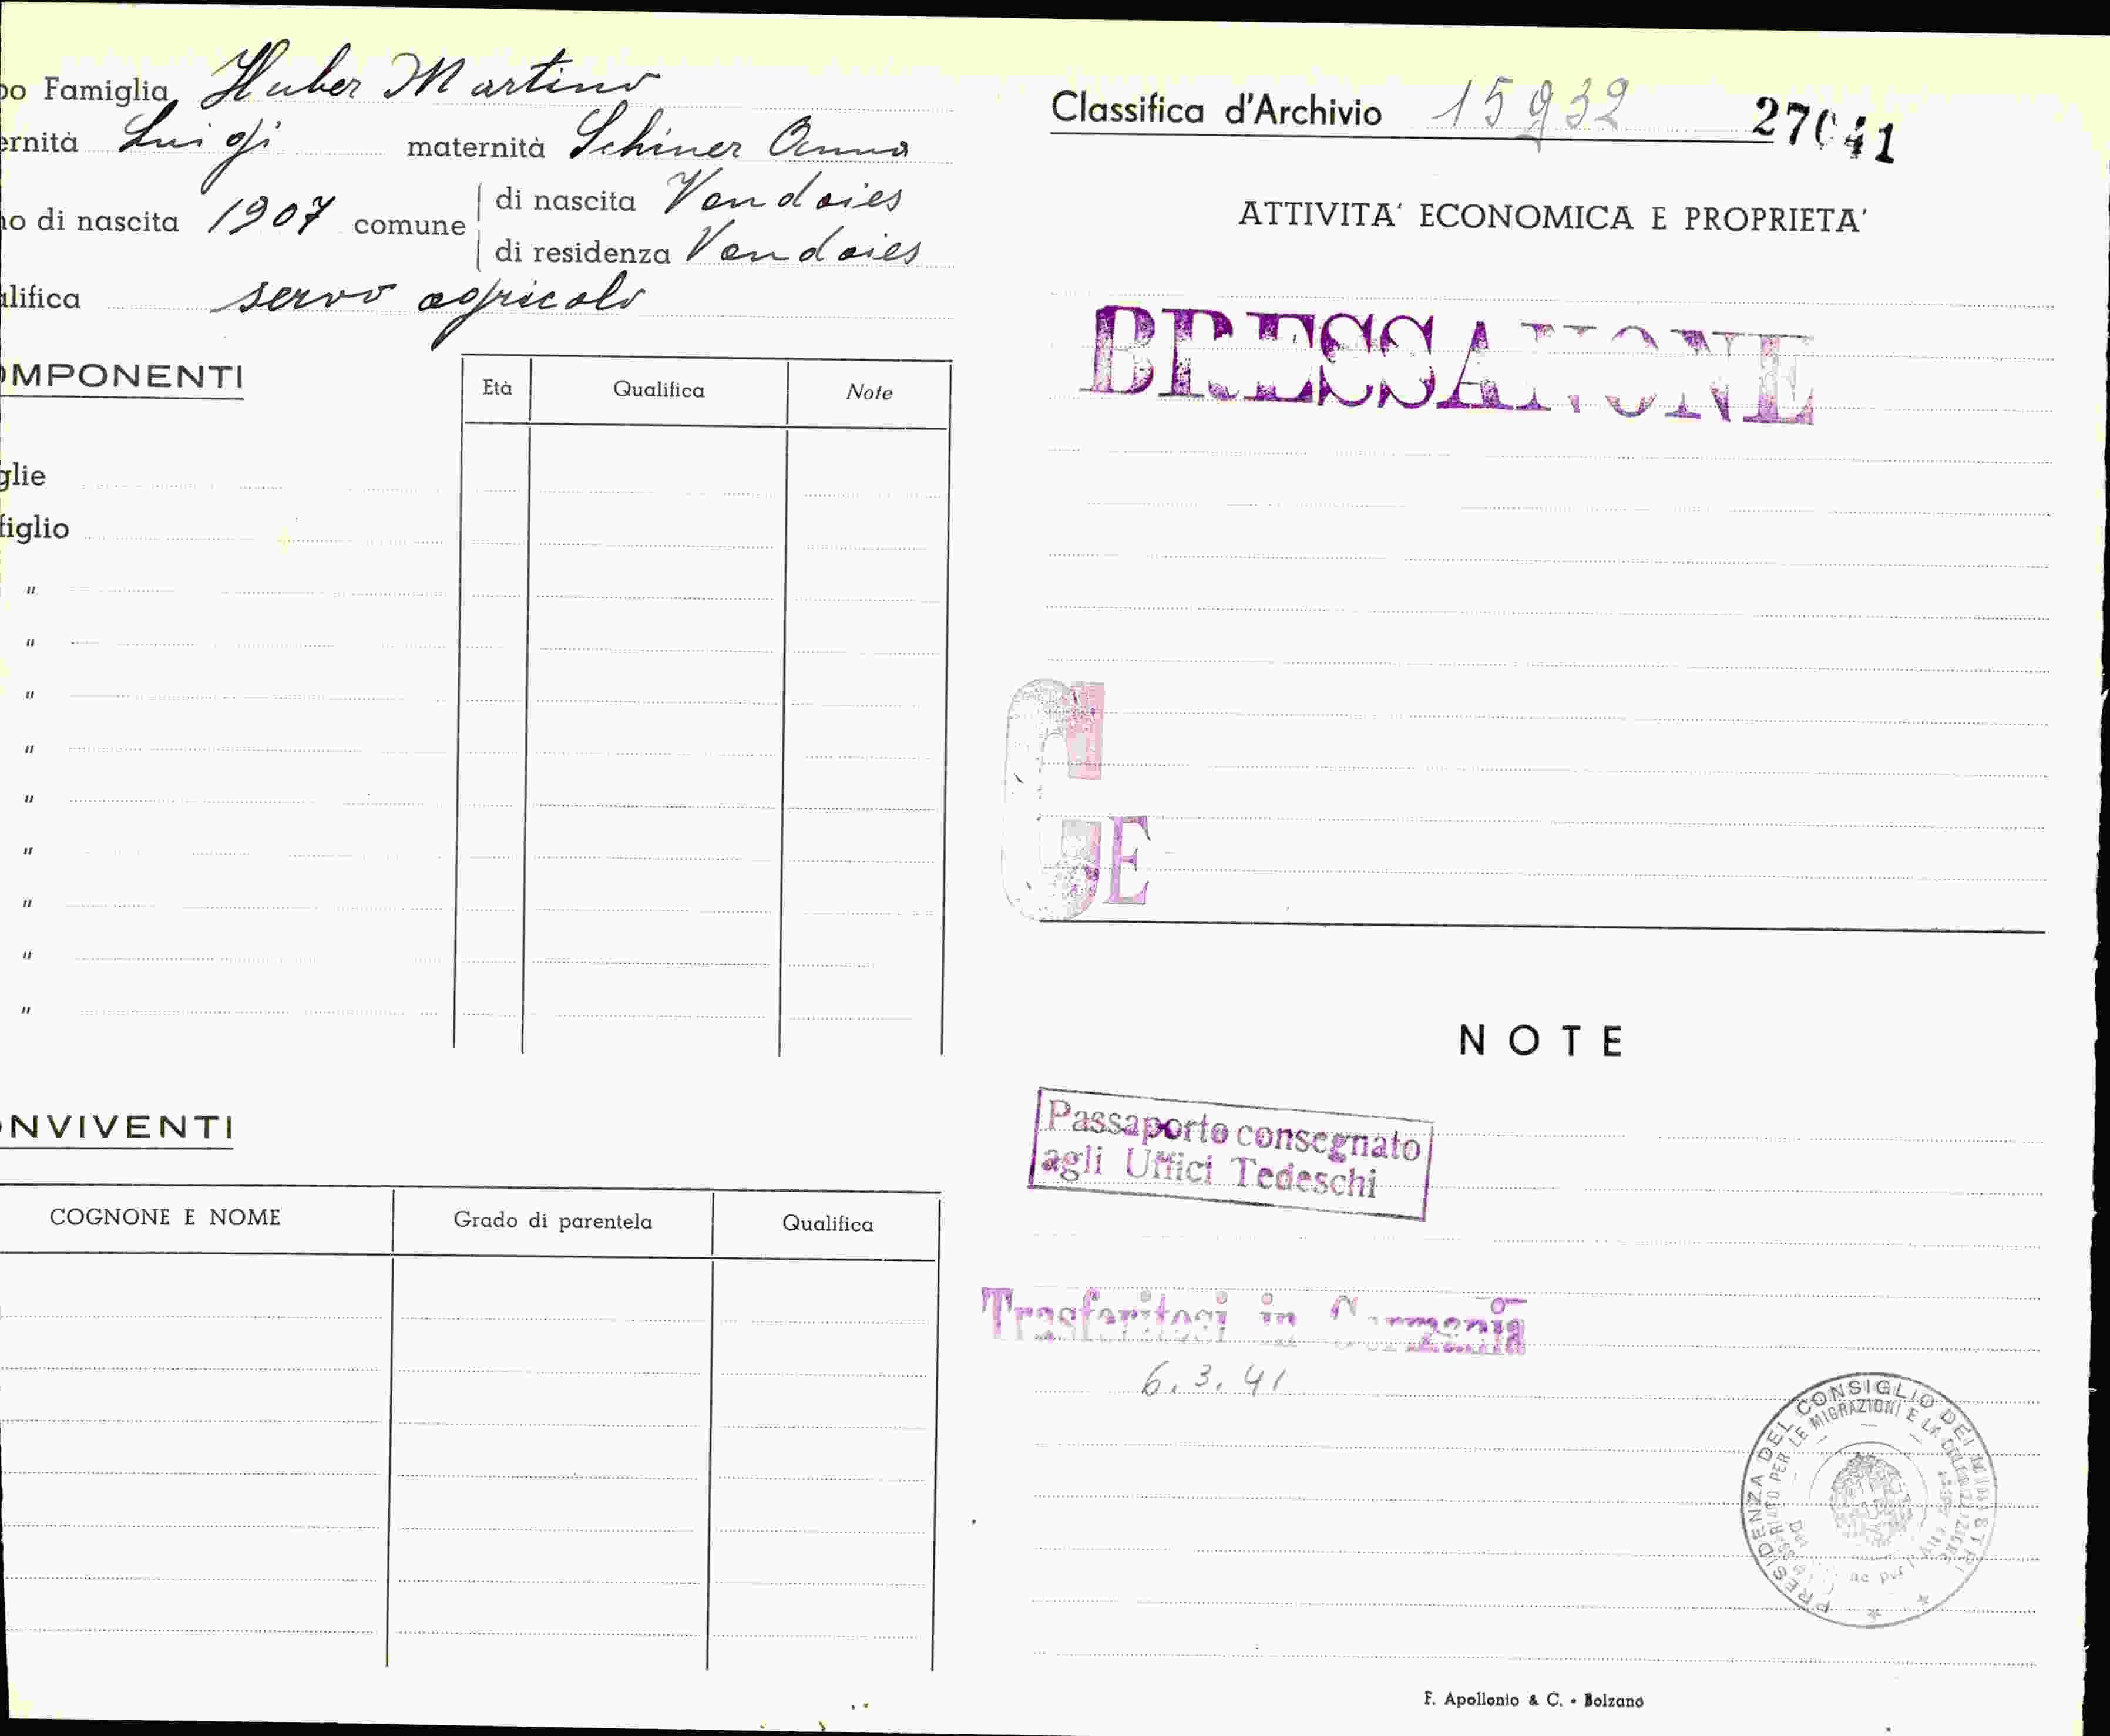 po Famiglia Huber Martino
ernità Luigi maternità Schiner Anna
no di nascita 1907 comune di nascita Vandoies
di residenza Vandoies
alifica servo agricolo
OMPONENTI
Età Qualifica Note
glie
figlio
"
"
"
"
"
"
"
"
"
ONVIVENTI
COGNONE E NOME Grado di parentela Qualifica
Classifica d'Archivio 15932 27041
ATTIVITA' ECONOMICA E PROPRIETA'
BRESSANONE
GE
NOTE
Passaporto consegnato
agli Uffici Tedeschi
Trasferitosi in Germania
6.3.41
PRESIDENZA DEL CONSIGLIO DEI MINISTRI
PER LE MIGRAZIONI E LA COLONIZZAZIONE
F. Apollonio & C. - Bolzano